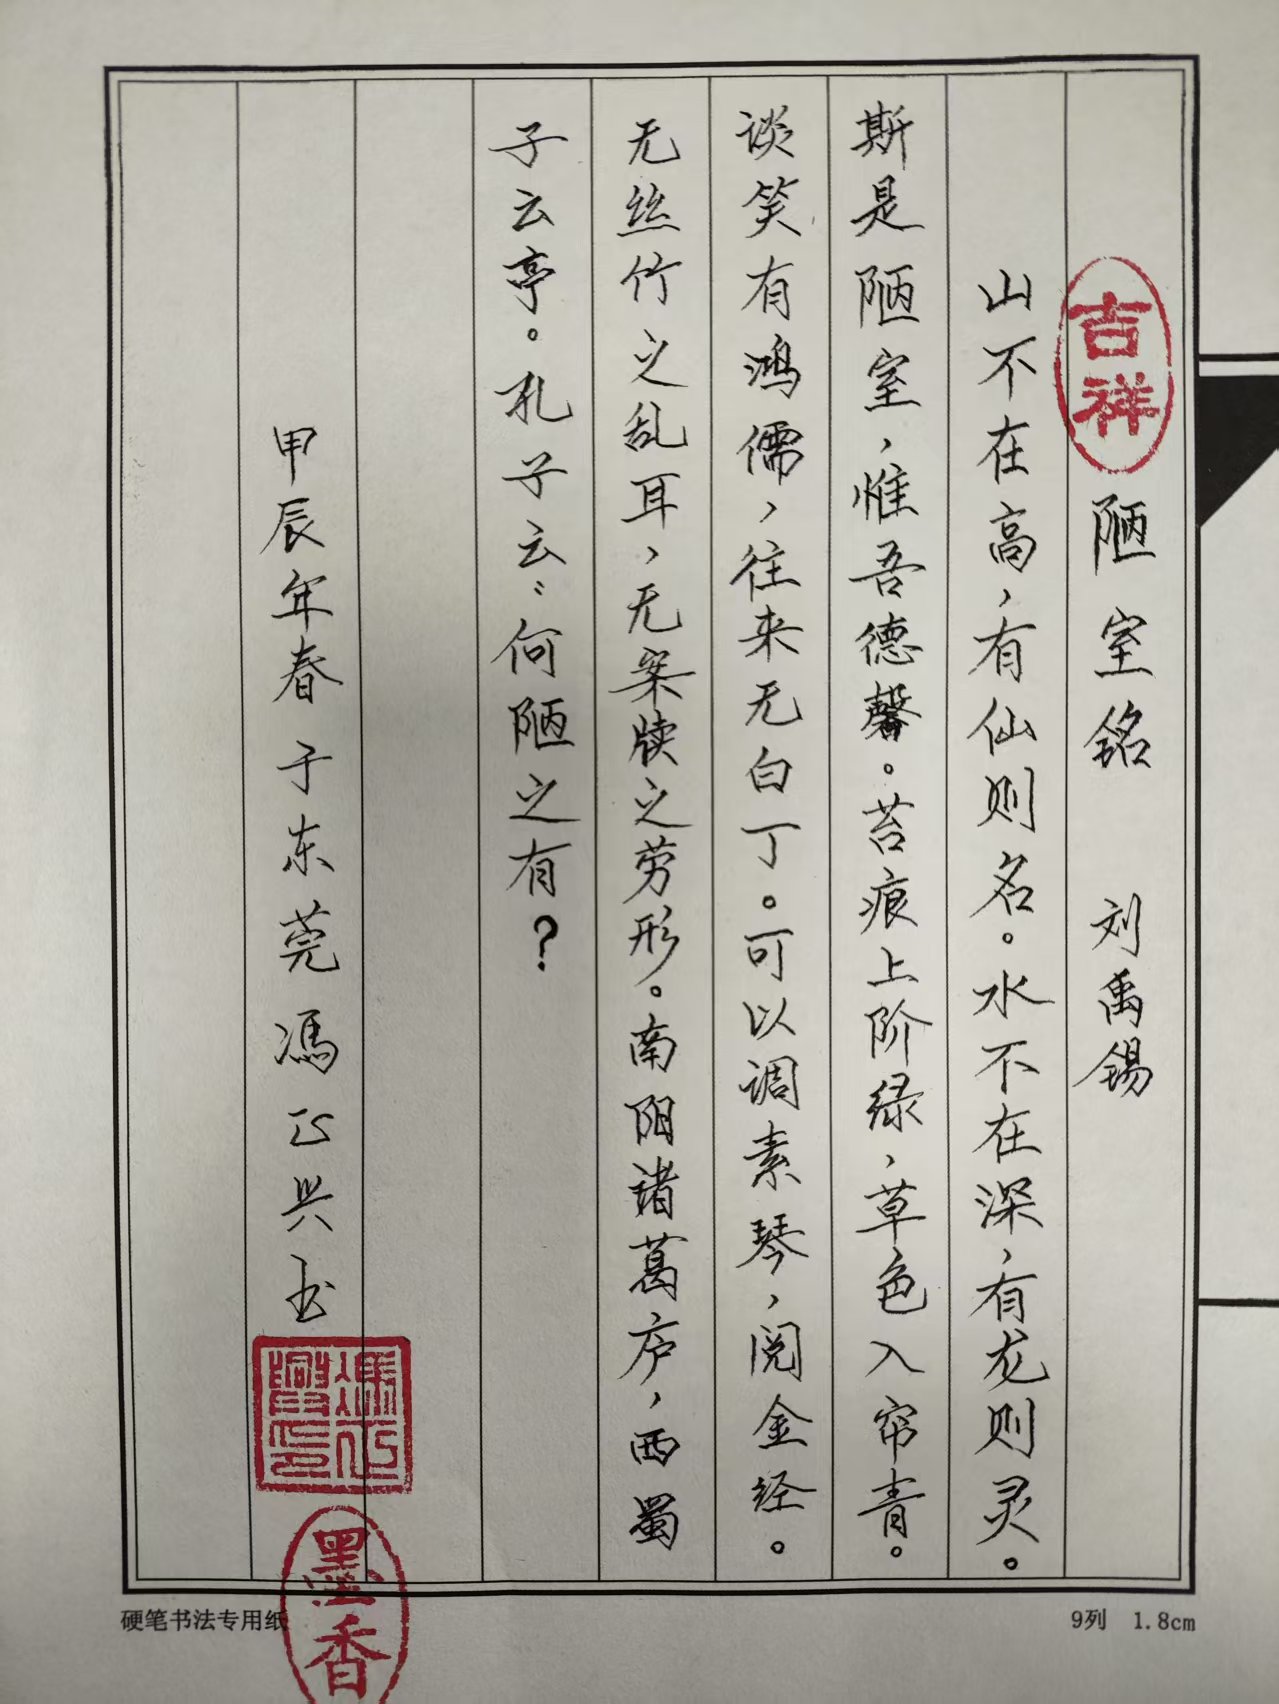 吉祥
陋室铭 刘禹锡
山不在高,有仙则名。水不在深,有龙则灵。
斯是陋室,惟吾德馨。苔痕上阶绿,草色入帘青。
谈笑有鸿儒,往来无白丁。可以调素琴,阅金经。
无丝竹之乱耳,无案牍之劳形。南阳诸葛庐,西蜀
子云亭。孔子云:何陋之有?
甲辰年春于东莞冯正兴书
冯正兴印
墨香
硬笔书法专用纸
9列 1.8cm